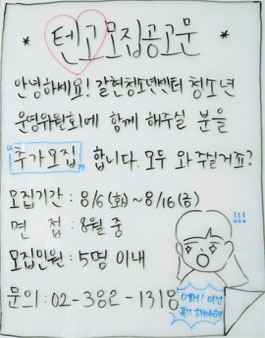 * 텐고모집공고문 *
안녕하세요! 갈현청소년센터 청소년
운영위원회에 함께 해주실 분을
"추가모집" 합니다. 모두 와주실거죠?
모집기간 : 8/6(화)~8/16(금)
면 접 : 8월 중
모집인원 : 5명 이내
!!!
문의 : 02-382-1318
어머! 이건
꼭 해야해!